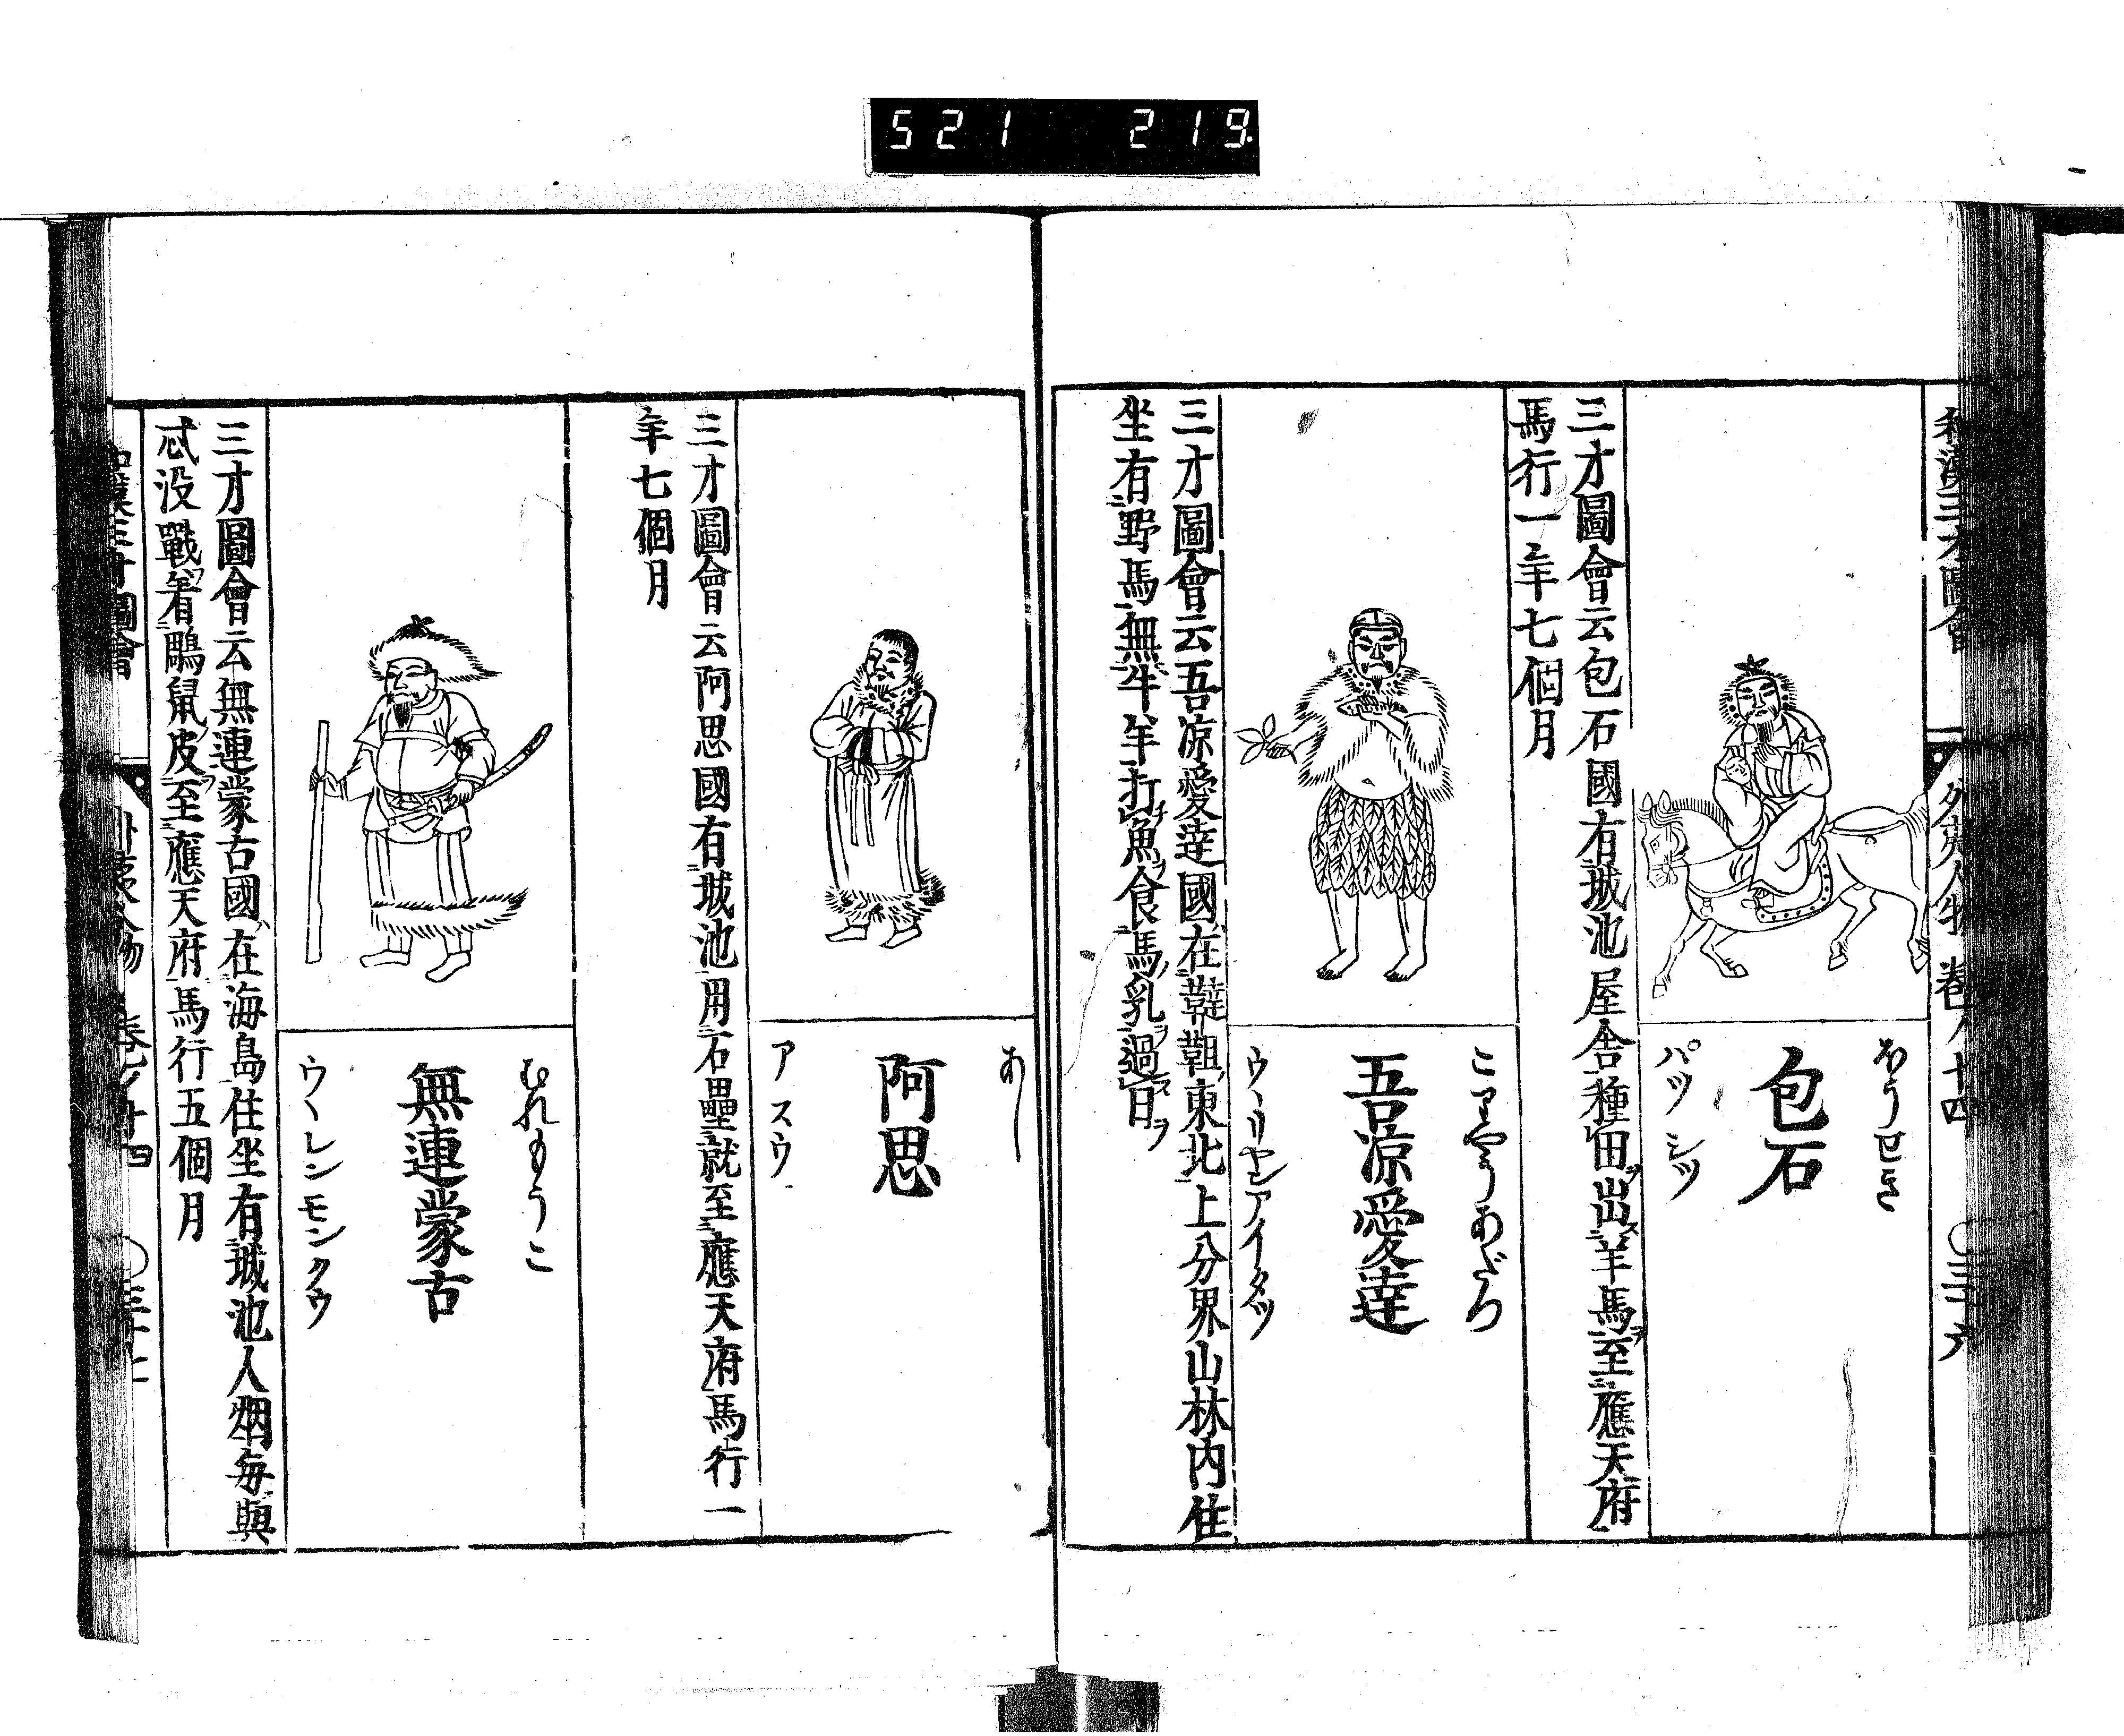 521 219
和漢三才圖會 外夷人物 卷十四 〇三十六
ほうせき
包石
パツ シツ
三才圖會云包石國有城池屋舎種田ヲ出ス羊馬ヲ至應天府
馬行一年七個月
こりやうあだつ
吾凉愛達
ウヽリヤンアイタツ
三才圖會云吾凉愛達國在韃靼東北上分界山林内住
坐有野馬無牛羊打チ魚ヲ食馬ノ乳ヲ過ス日ヲ
あし
阿思
アスウ
三才圖會云阿思國有城池用石壘就至應天府馬行一
年七個月
むれもうこ
無連蒙古
ウヽレンモンクウ
三才圖會云無連蒙古國在海島住坐有城池人烟毎與
忒没戰フ着鵰鼠皮ヲ至應天府馬行五個月
和漢三才圖會 外夷人物 卷十四 〇三十七